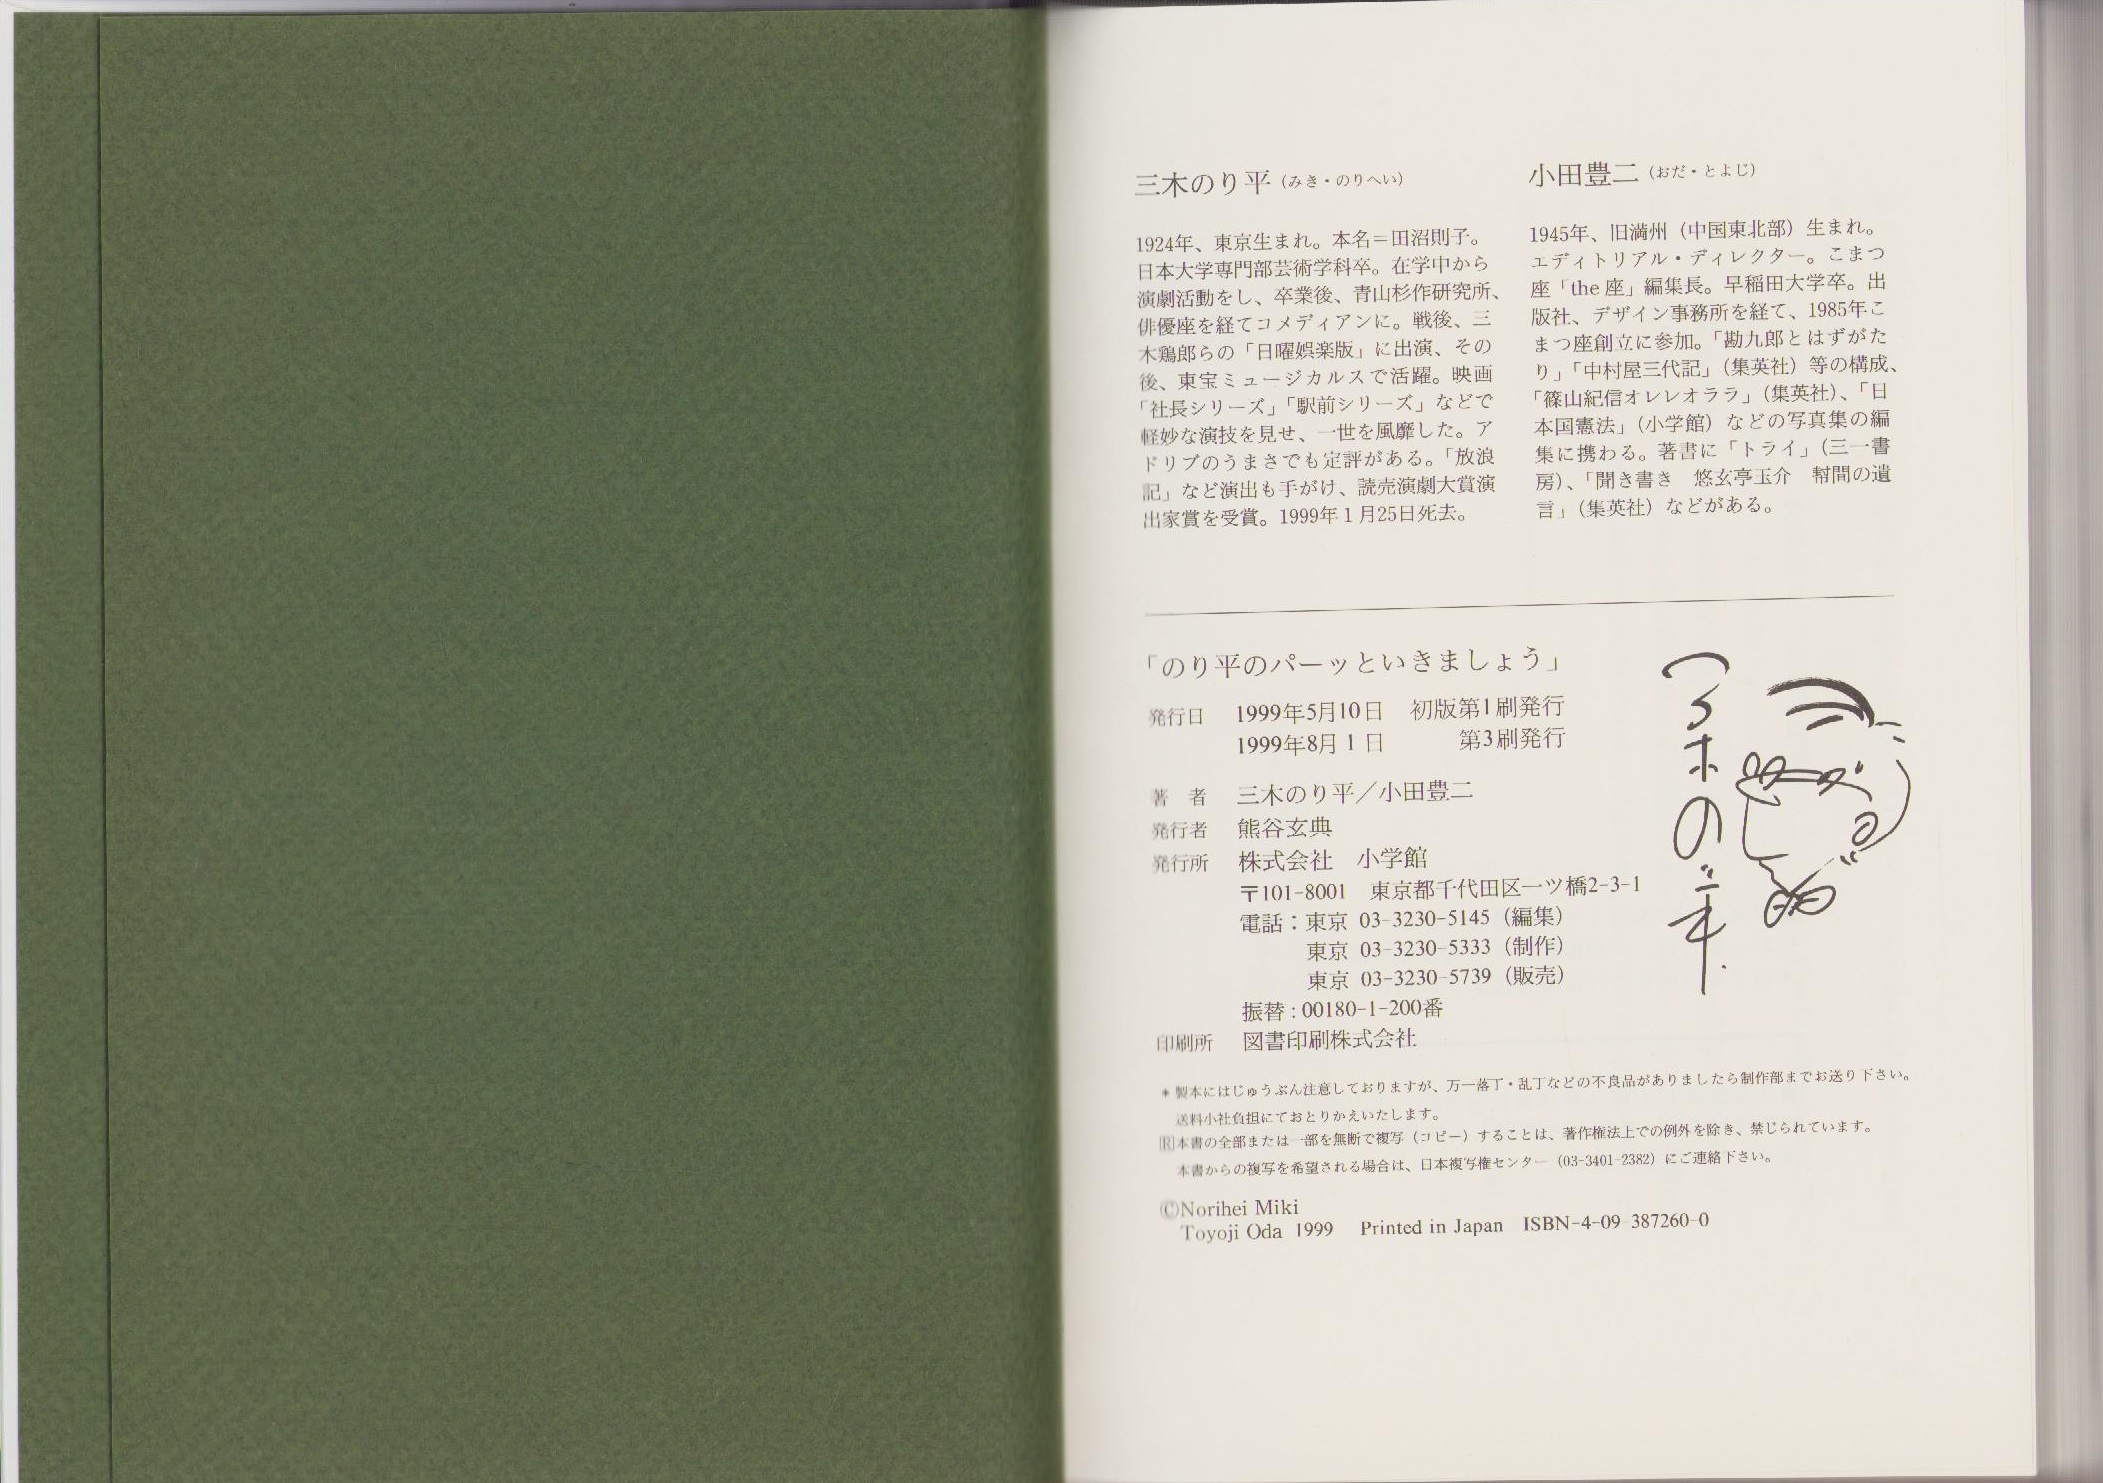 三木のり平（みき・のりへい）
1924年、東京生まれ。本名＝田沼則子。
日本大学専門部芸術学科卒。在学中から
演劇活動をし、卒業後、青山杉作研究所、
俳優座を経てコメディアンに。戦後、三
木鶏郎らの「日曜娯楽版」に出演、その
後、東宝ミュージカルスで活躍。映画
「社長シリーズ」「駅前シリーズ」などで
軽妙な演技を見せ、一世を風靡した。ア
ドリブのうまさでも定評がある。「放浪
記」など演出も手がけ、読売演劇大賞演
出家賞を受賞。1999年1月25日死去。
小田豊二（おだ・とよじ）
1945年、旧満州（中国東北部）生まれ。
エディトリアル・ディレクター。こまつ
座「the座」編集長。早稲田大学卒。出
版社、デザイン事務所を経て、1985年こ
まつ座創立に参加。「勘九郎とはずがた
り」「中村屋三代記」（集英社）等の構成、
「篠山紀信オレレオララ」（集英社）、「日
本国憲法」（小学館）などの写真集の編
集に携わる。著書に「トライ」（三一書
房）、「聞き書き　悠玄亭玉介　幇間の遺
言」（集英社）などがある。
「のり平のパーッといきましょう」
発行日　1999年5月10日　初版第1刷発行
1999年8月1日　第3刷発行
著　者　三木のり平／小田豊二
発行者　熊谷玄典
発行所　株式会社　小学館
〒101-8001　東京都千代田区一ツ橋2-3-1
電話：東京 03-3230-5145（編集）
東京 03-3230-5333（制作）
東京 03-3230-5739（販売）
振替：00180-1-200番
印刷所　図書印刷株式会社
＊製本にはじゅうぶん注意しておりますが、万一落丁・乱丁などの不良品がありましたら制作部までお送り下さい。
送料小社負担にておとりかえいたします。
Ⓡ本書の全部または一部を無断で複写（コピー）することは、著作権法上での例外を除き、禁じられています。
本書からの複写を希望される場合は、日本複写権センター（03-3401-2382）にご連絡下さい。
©Norihei Miki
Toyoji Oda 1999　Printed in Japan　ISBN-4-09-387260-0